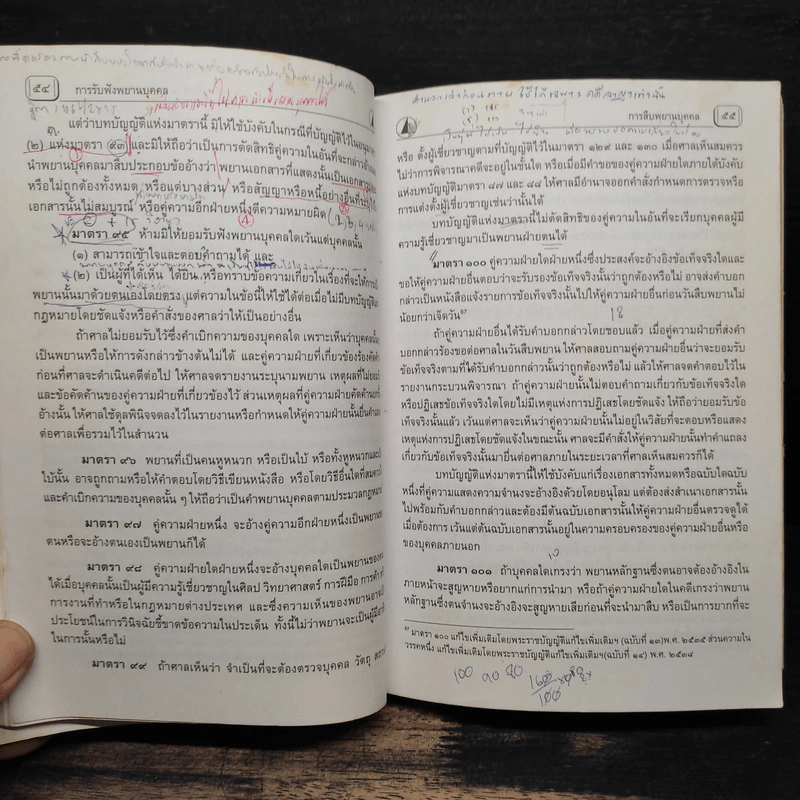 ๕๔ การรับฟังพยานบุคคล
แต่ว่าบทบัญญัติแห่งมาตรานี้ มิให้ใช้บังคับในกรณีที่บัญญัติไว้ในอนุมาตรา
(๒) แห่งมาตรา ๙๓ และมิให้ถือว่าเป็นการตัดสิทธิคู่ความในอันที่จะกล่าวอ้าง
นำพยานบุคคลมาสืบประกอบข้ออ้างว่า พยานเอกสารที่แสดงนั้นเป็นเอกสาร
หรือไม่ถูกต้องทั้งหมด หรือแต่บางส่วน หรือสัญญาหรือหนี้อย่างอื่นที่ระบุไว้
เอกสารนั้นไม่สมบูรณ์ หรือคู่ความอีกฝ่ายหนึ่งตีความหมายผิด
มาตรา ๙๕ ห้ามมิให้ยอมรับฟังพยานบุคคลใดเว้นแต่บุคคลนั้น
(๑) สามารถเข้าใจและตอบคำถามได้ และ
(๒) เป็นผู้ที่ได้เห็น ได้ยิน หรือทราบข้อความเกี่ยวในเรื่องที่จะให้การ
พยานนั้นมาด้วยตนเองโดยตรง แต่ความในข้อนี้ให้ใช้ได้ต่อเมื่อไม่มีบทบัญญัติ
กฎหมายโดยชัดแจ้งหรือคำสั่งของศาลว่าให้เป็นอย่างอื่น
ถ้าศาลไม่ยอมรับไว้ซึ่งคำเบิกความของบุคคลใด เพราะเห็นว่าบุคคลนั้น
เป็นพยานหรือให้การดังกล่าวข้างต้นไม่ได้ และคู่ความฝ่ายที่เกี่ยวข้องร้องคัดค้าน
ก่อนที่ศาลจะดำเนินคดีต่อไป ให้ศาลจดรายงานระบุนามพยาน เหตุผลที่ไม่ยอม
และข้อคัดค้านของคู่ความฝ่ายที่เกี่ยวข้องไว้ ส่วนเหตุผลที่คู่ความฝ่ายคัดค้านยก
อ้างนั้น ให้ศาลใช้ดุลพินิจจดลงไว้ในรายงานหรือกำหนดให้คู่ความฝ่ายนั้นยื่นคำ
ต่อศาลเพื่อรวมไว้ในสำนวน
มาตรา ๙๖ พยานที่เป็นคนหูหนวก หรือเป็นใบ้ หรือทั้งหูหนวกและเป็น
ใบ้นั้น อาจถูกถามหรือให้คำตอบโดยวิธีเขียนหนังสือ หรือโดยวิธีอื่นใดที่สมควร
และคำเบิกความของบุคคลนั้น ๆ ให้ถือว่าเป็นคำพยานบุคคลตามประมวลกฎหมาย
มาตรา ๙๗ คู่ความฝ่ายหนึ่ง จะอ้างคู่ความอีกฝ่ายหนึ่งเป็นพยานของ
ตนหรือจะอ้างตนเองเป็นพยานก็ได้
มาตรา ๙๘ คู่ความฝ่ายใดฝ่ายหนึ่งจะอ้างบุคคลใดเป็นพยานของตน
ได้เมื่อบุคคลนั้นเป็นผู้มีความรู้เชี่ยวชาญในศิลป วิทยาศาสตร์ การฝีมือ การค้า
การงานที่ทำหรือในกฎหมายต่างประเทศ และซึ่งความเห็นของพยานอาจเป็น
ประโยชน์ในการวินิจฉัยชี้ขาดข้อความในประเด็น ทั้งนี้ไม่ว่าพยานจะเป็นผู้มีอาชีพ
ในการนั้นหรือไม่
มาตรา ๙๙ ถ้าศาลเห็นว่า จำเป็นที่จะต้องตรวจบุคคล วัตถุ สถานที่
การสืบพยานบุคคล ๕๕
หรือ ตั้งผู้เชี่ยวชาญตามที่บัญญัติไว้ในมาตรา ๑๒๙ และ ๑๓๐ เมื่อศาลเห็นสมควร
ไม่ว่าการพิจารณาคดีจะอยู่ในชั้นใด หรือเมื่อมีคำขอของคู่ความฝ่ายใดภายใต้บังคับ
แห่งบทบัญญัติมาตรา ๘๗ และ ๘๘ ให้ศาลมีอำนาจออกคำสั่งกำหนดการตรวจหรือ
การแต่งตั้งผู้เชี่ยวชาญเช่นว่านั้นได้
บทบัญญัติแห่งมาตรานี้ไม่ตัดสิทธิของคู่ความในอันที่จะเรียกบุคคลผู้มี
ความรู้เชี่ยวชาญมาเป็นพยานฝ่ายตนได้
มาตรา ๑๐๐ คู่ความฝ่ายใดฝ่ายหนึ่งซึ่งประสงค์จะอ้างอิงข้อเท็จจริงใดและ
ขอให้คู่ความฝ่ายอื่นตอบว่าจะรับรองข้อเท็จจริงนั้นว่าถูกต้องหรือไม่ อาจส่งคำบอก
กล่าวเป็นหนังสือแจ้งรายการข้อเท็จจริงนั้นไปให้คู่ความฝ่ายอื่นก่อนวันสืบพยานไม่
น้อยกว่าเจ็ดวัน⁶⁷
18
ถ้าคู่ความฝ่ายอื่นได้รับคำบอกกล่าวโดยชอบแล้ว เมื่อคู่ความฝ่ายที่ส่งคำ
บอกกล่าวร้องขอต่อศาลในวันสืบพยาน ให้ศาลสอบถามคู่ความฝ่ายอื่นว่าจะยอมรับ
ข้อเท็จจริงตามที่ได้รับคำบอกกล่าวนั้นว่าถูกต้องหรือไม่ แล้วให้ศาลจดคำตอบไว้ใน
รายงานกระบวนพิจารณา ถ้าคู่ความฝ่ายนั้นไม่ตอบคำถามเกี่ยวกับข้อเท็จจริงใด
หรือปฏิเสธข้อเท็จจริงใดโดยไม่มีเหตุแห่งการปฏิเสธโดยชัดแจ้ง ให้ถือว่ายอมรับข้อ
เท็จจริงนั้นแล้ว เว้นแต่ศาลจะเห็นว่าคู่ความฝ่ายนั้นไม่อยู่ในวิสัยที่จะตอบหรือแสดง
เหตุแห่งการปฏิเสธโดยชัดแจ้งในขณะนั้น ศาลจะมีคำสั่งให้คู่ความฝ่ายนั้นทำคำแถลง
เกี่ยวกับข้อเท็จจริงนั้นมายื่นต่อศาลภายในระยะเวลาที่ศาลเห็นสมควรก็ได้
บทบัญญัติแห่งมาตรานี้ให้ใช้บังคับแก่เรื่องเอกสารทั้งหมดหรือฉบับใดฉบับ
หนึ่งที่คู่ความแสดงความจำนงจะอ้างอิงด้วยโดยอนุโลม แต่ต้องส่งสำเนาเอกสารนั้น
ไปพร้อมกับคำบอกกล่าวและต้องมีต้นฉบับเอกสารนั้นให้คู่ความฝ่ายอื่นตรวจดูได้
เมื่อต้องการ เว้นแต่ต้นฉบับเอกสารนั้นอยู่ในความครอบครองของคู่ความฝ่ายอื่นหรือ
ของบุคคลภายนอก
10
มาตรา ๑๐๑ ถ้าบุคคลใดเกรงว่า พยานหลักฐานซึ่งตนอาจต้องอ้างอิงใน
ภายหน้าจะสูญหายหรือยากแก่การนำมา หรือถ้าคู่ความฝ่ายใดในคดีเกรงว่าพยาน
หลักฐานซึ่งตนจำนงจะอ้างอิงจะสูญหายเสียก่อนที่จะนำมาสืบ หรือเป็นการยากที่จะ
⁶⁷ มาตรา ๑๐๐ แก้ไขเพิ่มเติมโดยพระราชบัญญัติแก้ไขเพิ่มเติมฯ (ฉบับที่ ๑๓)พ.ศ. ๒๕๓๕ ส่วนความใน
วรรคหนึ่ง แก้ไขเพิ่มเติมโดยพระราชบัญญัติแก้ไขเพิ่มเติมฯ(ฉบับที่ ๑๔) พ.ศ. ๒๕๓๘
100 90 80